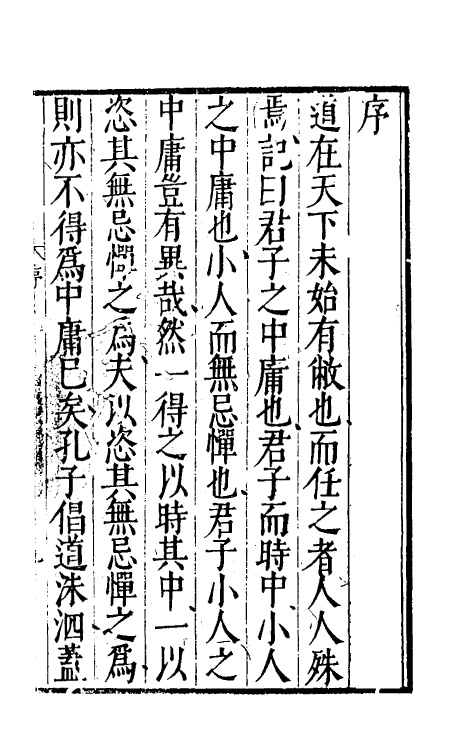 序
道在天下未始有敝也而任之者人人殊
焉記曰君子之中庸也君子而時中小人
之中庸也小人而無忌憚也君子小人之
中庸豈有異哉然一得之以時其中一以
恣其無忌憚之為夫以恣其無忌憚之爲
則亦不得爲中庸已矣孔子倡道洙泗蓋